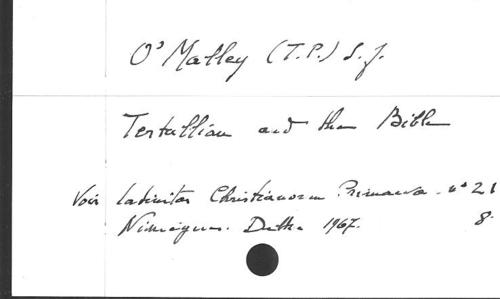 O'Malley (T.P.) S.J.
Tertullian and the Bible
Voir Latinitas Christianorum Primaeva. n° 21
Nimègue. Dekker 1967. 8°